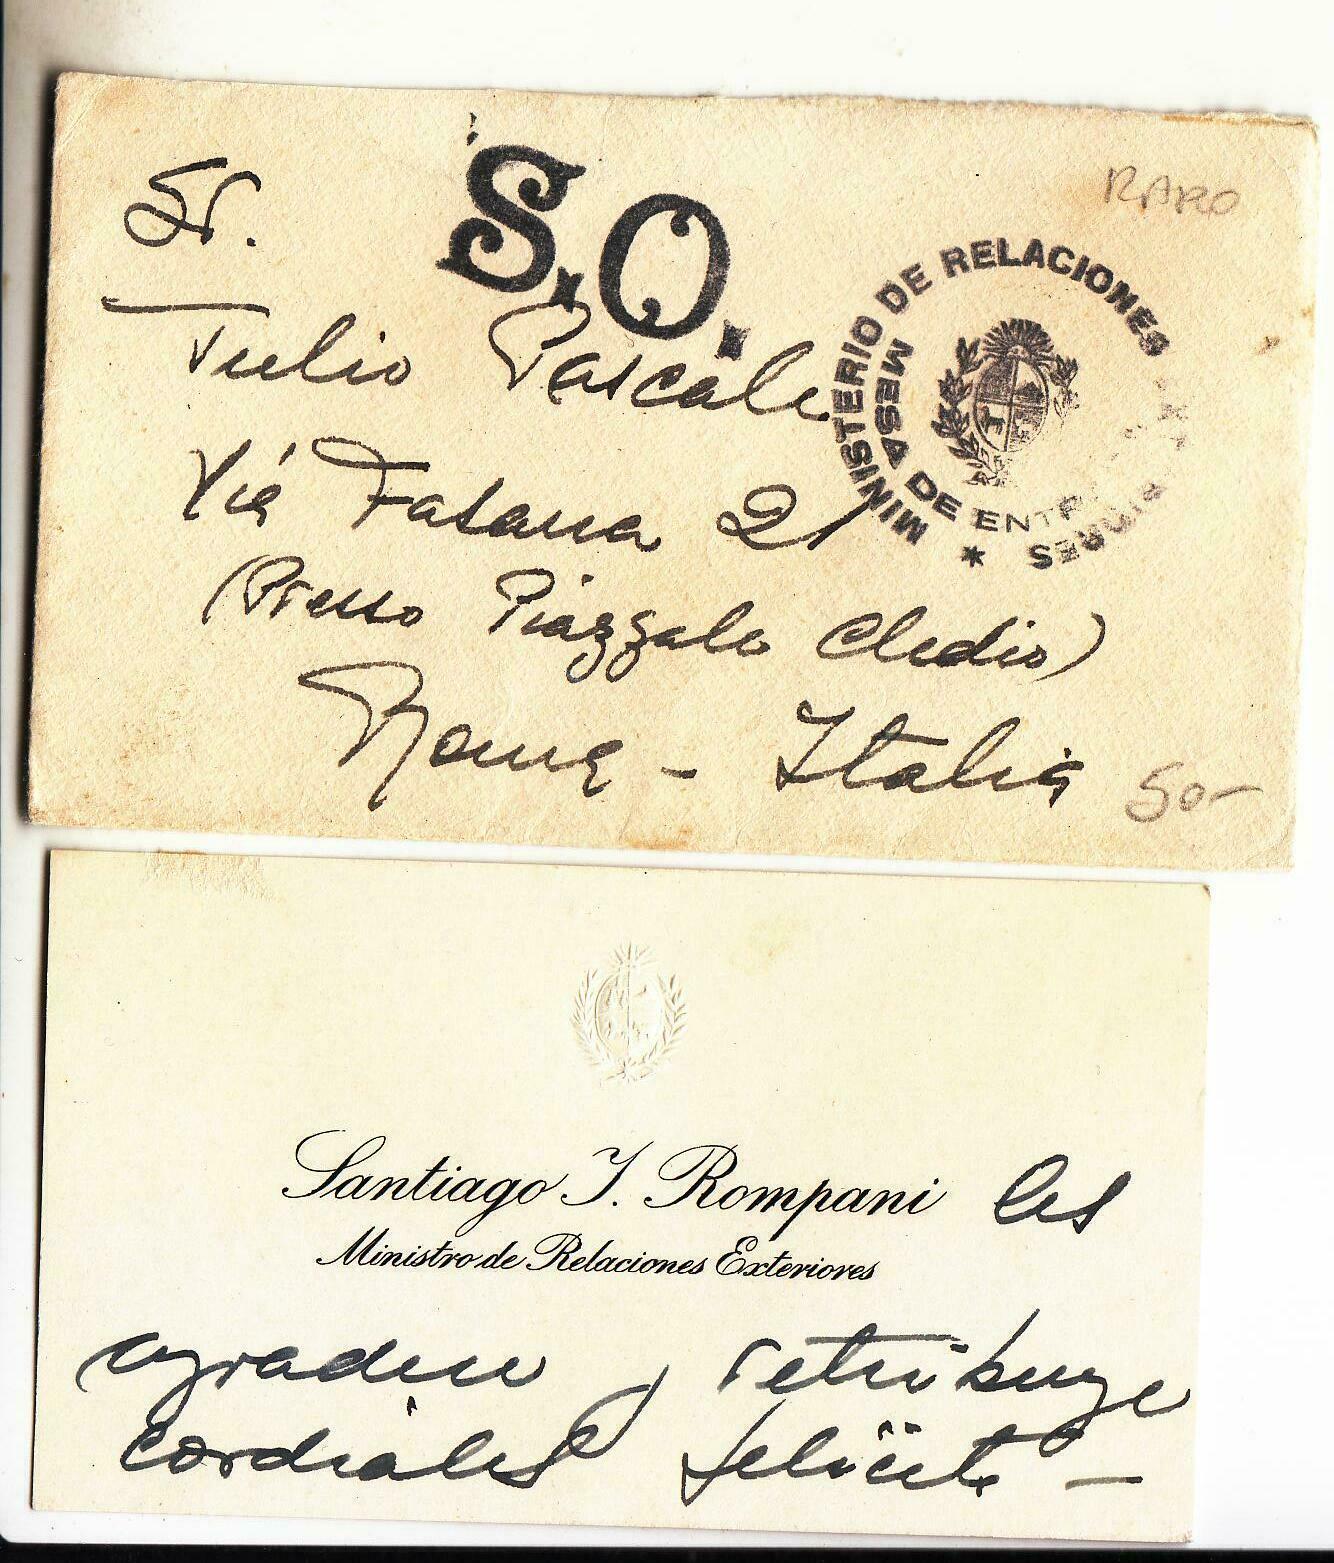 S.O.
RARO
Sr.
Tulio Pascale
MINISTERIO DE RELACIONES EXTERIORES
MESA DE ENTRADA
*
Via Fasana 21
(Presso Piazzale Clodio)
Roma - Italia
50-
Santiago I. Rompani les
Ministro de Relaciones Exteriores
agradece y retribuye
cordiales felicit